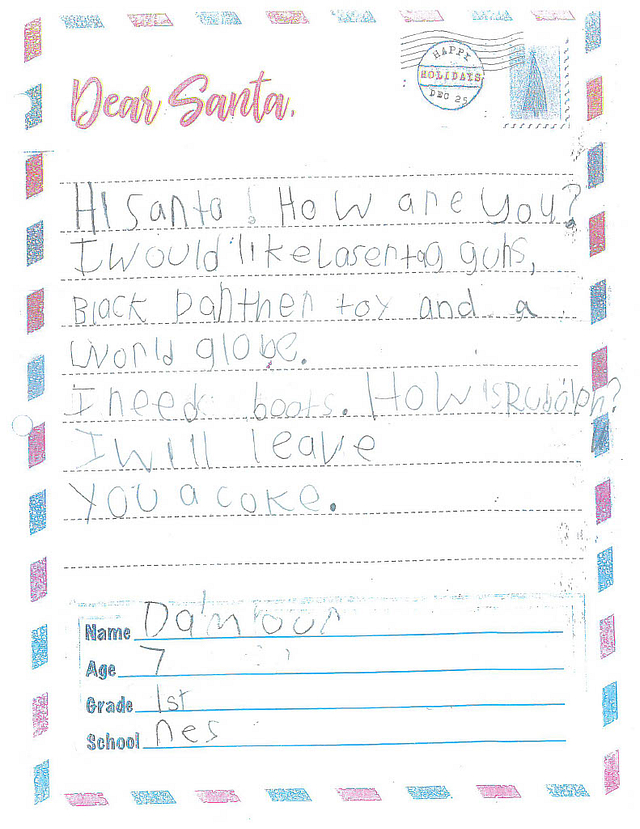 HAPPY
HOLIDAYS
DEC 25
Dear Santa,
HI Santa! How are you?
I would like lasertag guns,
Black panther toy and a
World globe.
I need boots. How is Rudolph?
I will leave
you a coke.
Name Da'mour
Age 7
Grade 1st
School nes